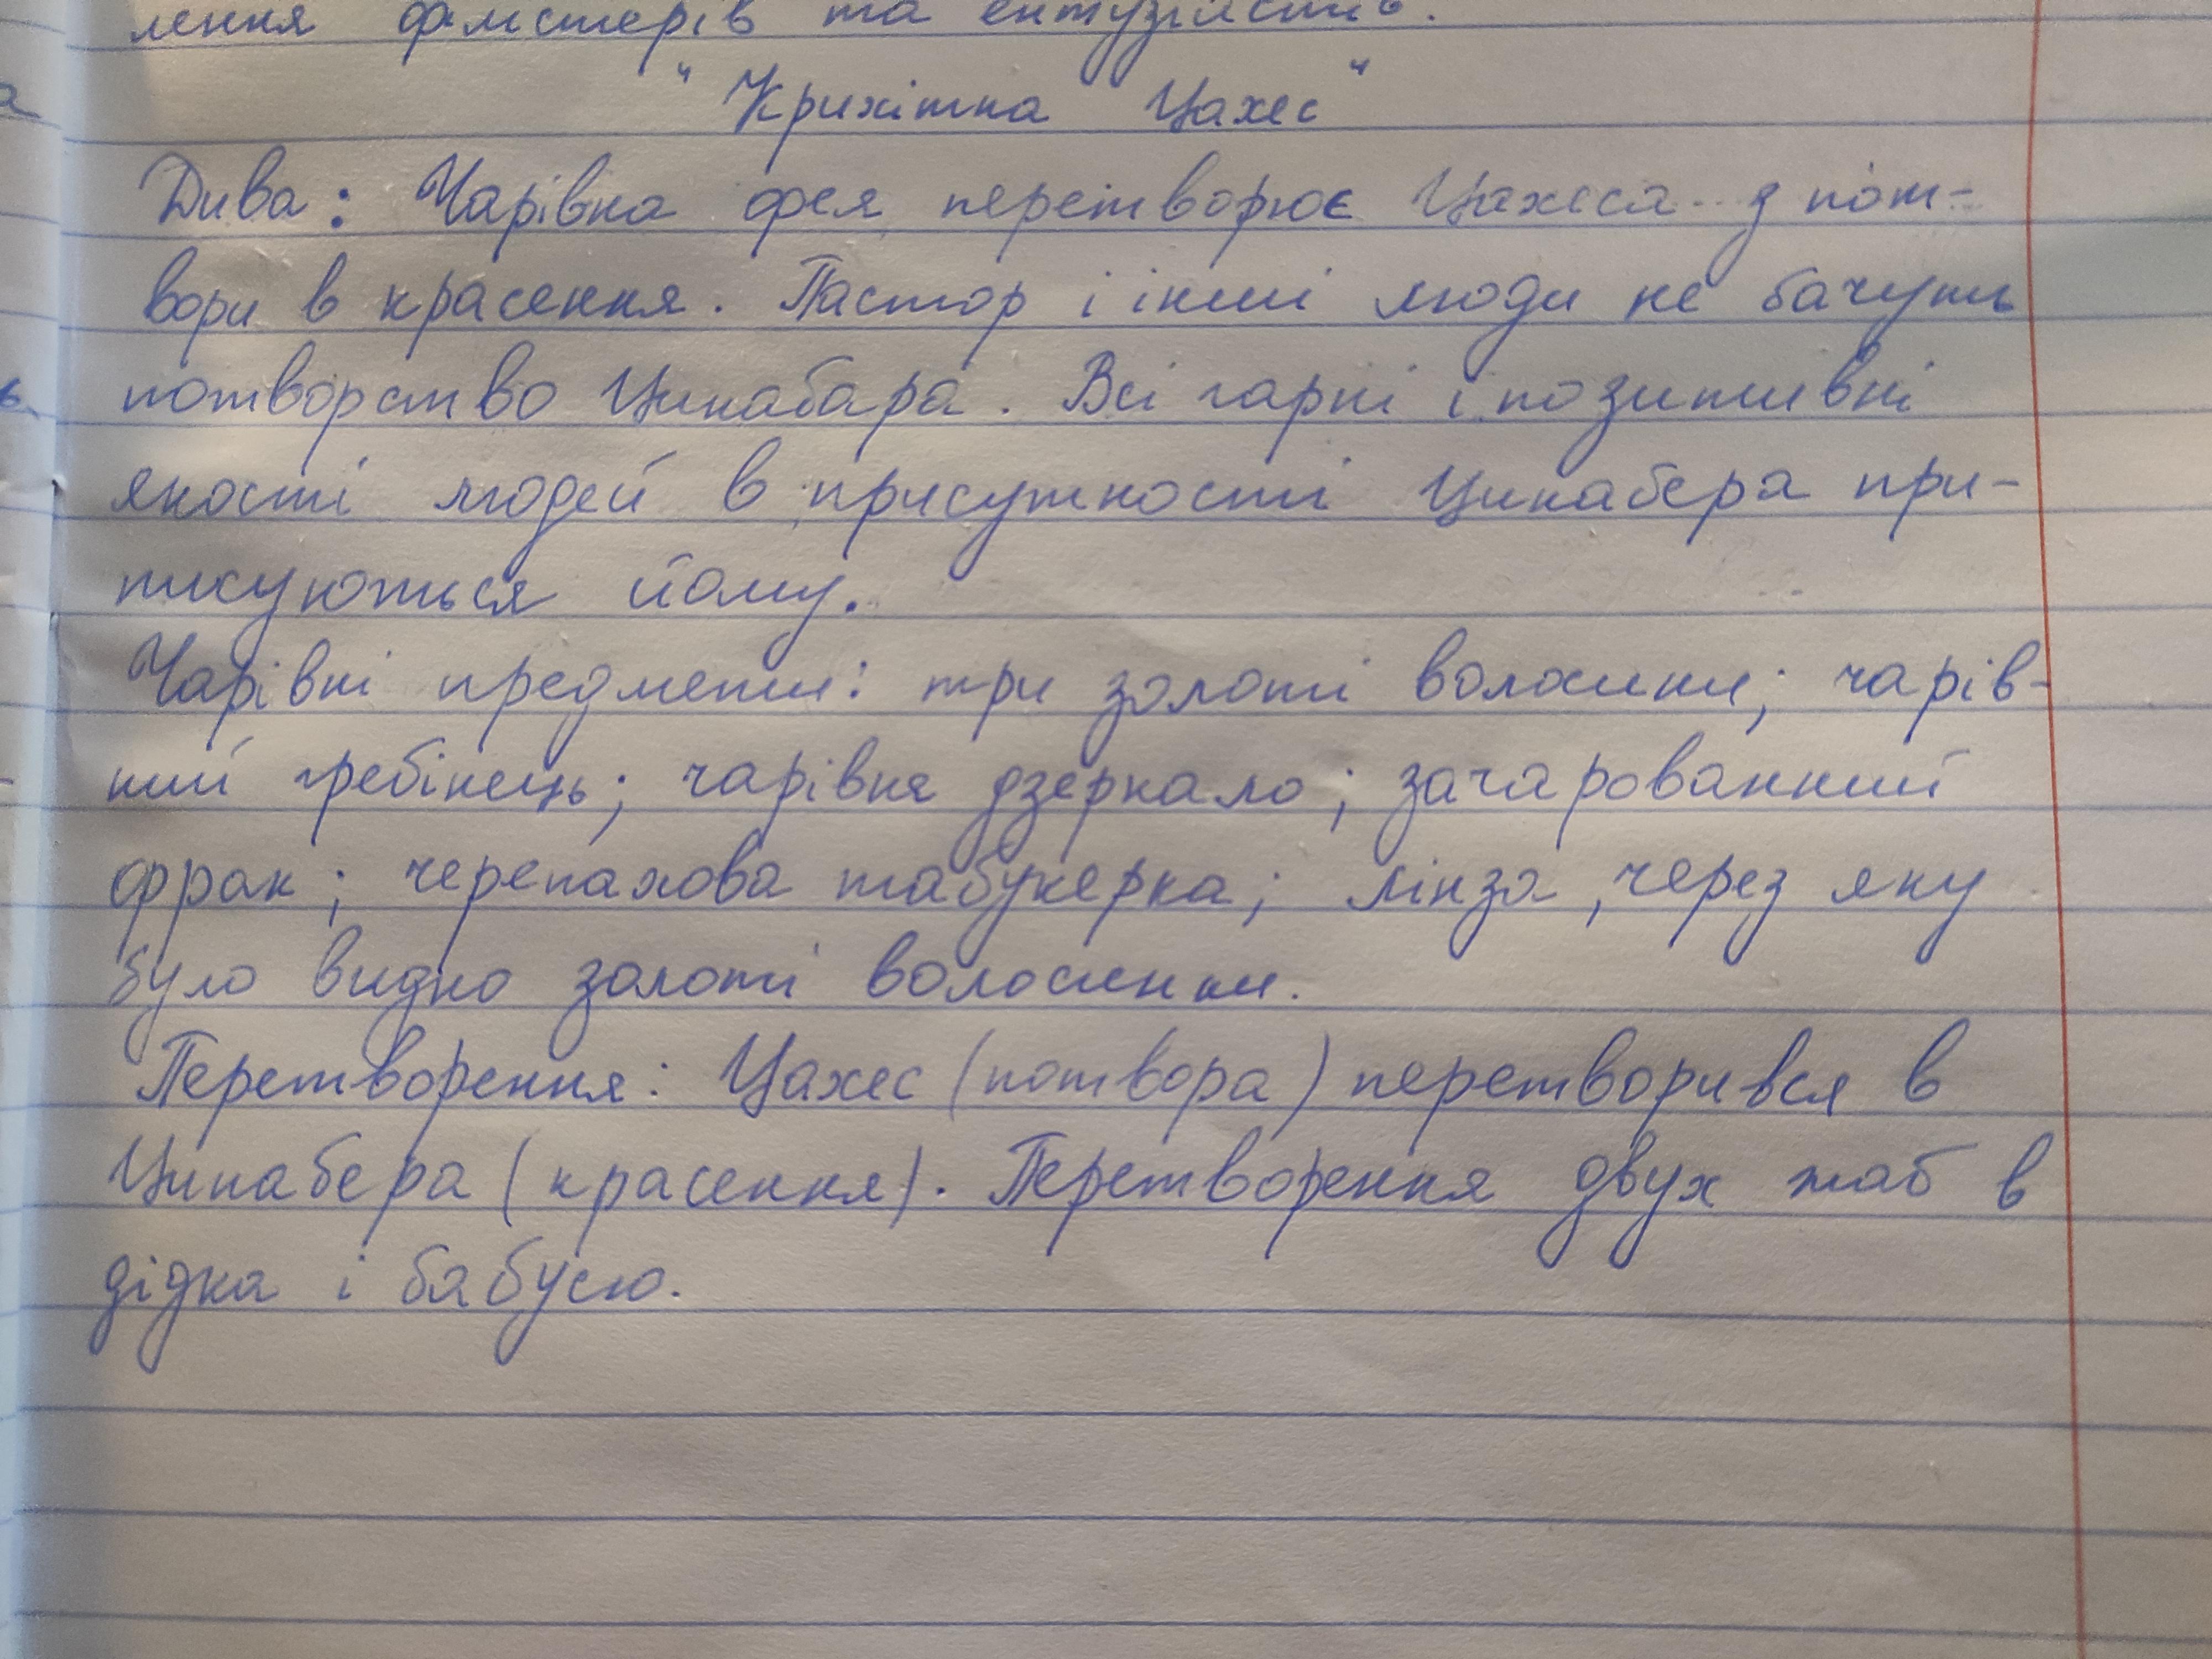 лення філістерів та ентузіастів.
"Крихітка Цахес"
Дива: Чарівна фея перетворює Цахеса з пот-
вори в красення. Пастор і інші люди не бачуть
потворство Цинабара. Всі гарні і позитивні
якості людей в присутності Цинабера при-
писуються йому.
Чарівні предмети: три золоті волосини; чарів-
ний гребінець; чарівне дзеркало; зачарованний
фрак; черепахова табукерка; лінза, через яку
було видно золоті волосинки.
Перетворення: Цахес (потвора) перетворився в
Цинабера (красення). Перетворення двух жаб в
дідка і бабусю.